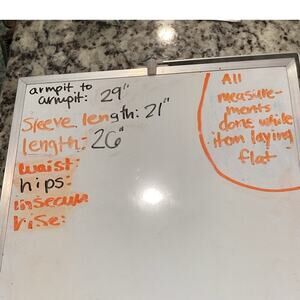 armpit to
armpit: 29"
Sleeve length: 21"
length: 26"
waist:
hips:
insecum
rise:
All
measure-
ments
done while
item laying
flat